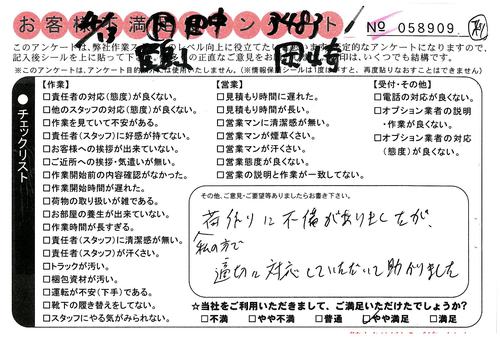 お客様不満足アンケート
4/3 田中 3483
No 058909
岡崎
このアンケートは、弊社作業
レベル向上に役立てた
定的なアンケートになりますので、
記入後シールを上に貼って下
の正直なご意見をお
印は、いくつでも結構です。
※このアンケートは、アンケート目的
に使用いたしません。(※情報保護シールは1度はがすと、再度貼りなおすことはできません)
●チェックリスト
【作業】
□責任者の対応(態度)が良くない。
□他のスタッフの対応(態度)が良くない。
□作業を見ていて不安がある。
□責任者(スタッフ)に好感が持てない。
□お客様への挨拶が出来ていない。
□ご近所への挨拶・気遣いが無い。
□作業開始前の内容確認がなかった。
□作業開始時間が遅れた。
□荷物の取り扱いが雑である。
□お部屋の養生が出来ていない。
□作業時間が長すぎる。
□責任者(スタッフ)に清潔感が無い。
□責任者(スタッフ)が汗くさい。
□トラックが汚い。
□梱包資材が汚い。
□運転が不安(下手)である。
□靴下の履き替えをしてない。
□スタッフにやる気がみられない。
【営業】
□見積もり時間に遅れた。
□見積もり時間が長い。
□営業マンに清潔感が無い。
□営業マンが煙草くさい。
□営業マンが汗くさい。
□営業態度が良くない。
□営業の説明と作業が一致してない。
【受付・その他】
□電話の対応が良くない。
□オプション業者の説明
・作業が良くない。
□オプション業者の対応
(態度)が良くない。
その他、ご意見・ご要望等ありましたらお書き下さい。
荷作りに不備がありましたが、
私の方で
適切に対応していただいて助かりました
☆当社をご利用いただきまして、ご満足いただけましたでしょうか?
□不満 □やや不満 □普通 □やや満足 □満足